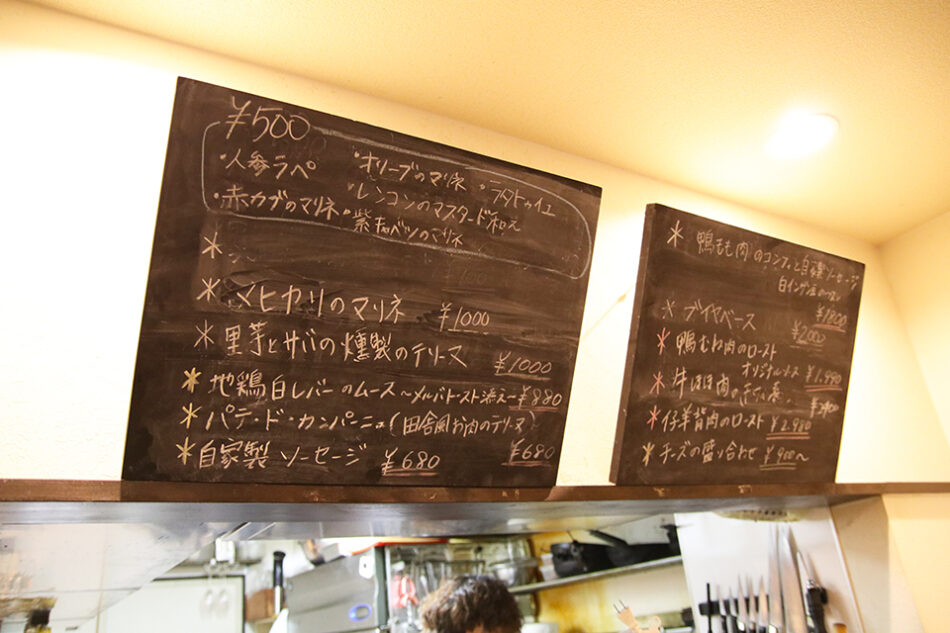 ¥500
・人参ラペ ・オリーブのマリネ ・ラタトゥイユ
・赤カブのマリネ ・レンコンのマスタード和え
・紫キャベツのマリネ
*
* マヒカリのマリネ ¥1000
* 里芋とサバの燻製のテリーヌ ¥1000
* 地鶏白レバーのムース〜メルバトースト添え〜 ¥880
* パテ・ド・カンパーニュ(田舎風お肉のテリーヌ) ¥680
* 自家製 ソーセージ ¥680
* 鴨もも肉のコンフィと自家製ソーセージ
白インゲン豆の
¥1800
* ブイヤベース ¥2000
* 鴨むね肉のロースト
オリジナルソース
* 牛ほほ肉の
* 仔羊背肉のロースト ¥2,980
* チーズの盛り合わせ ¥900〜